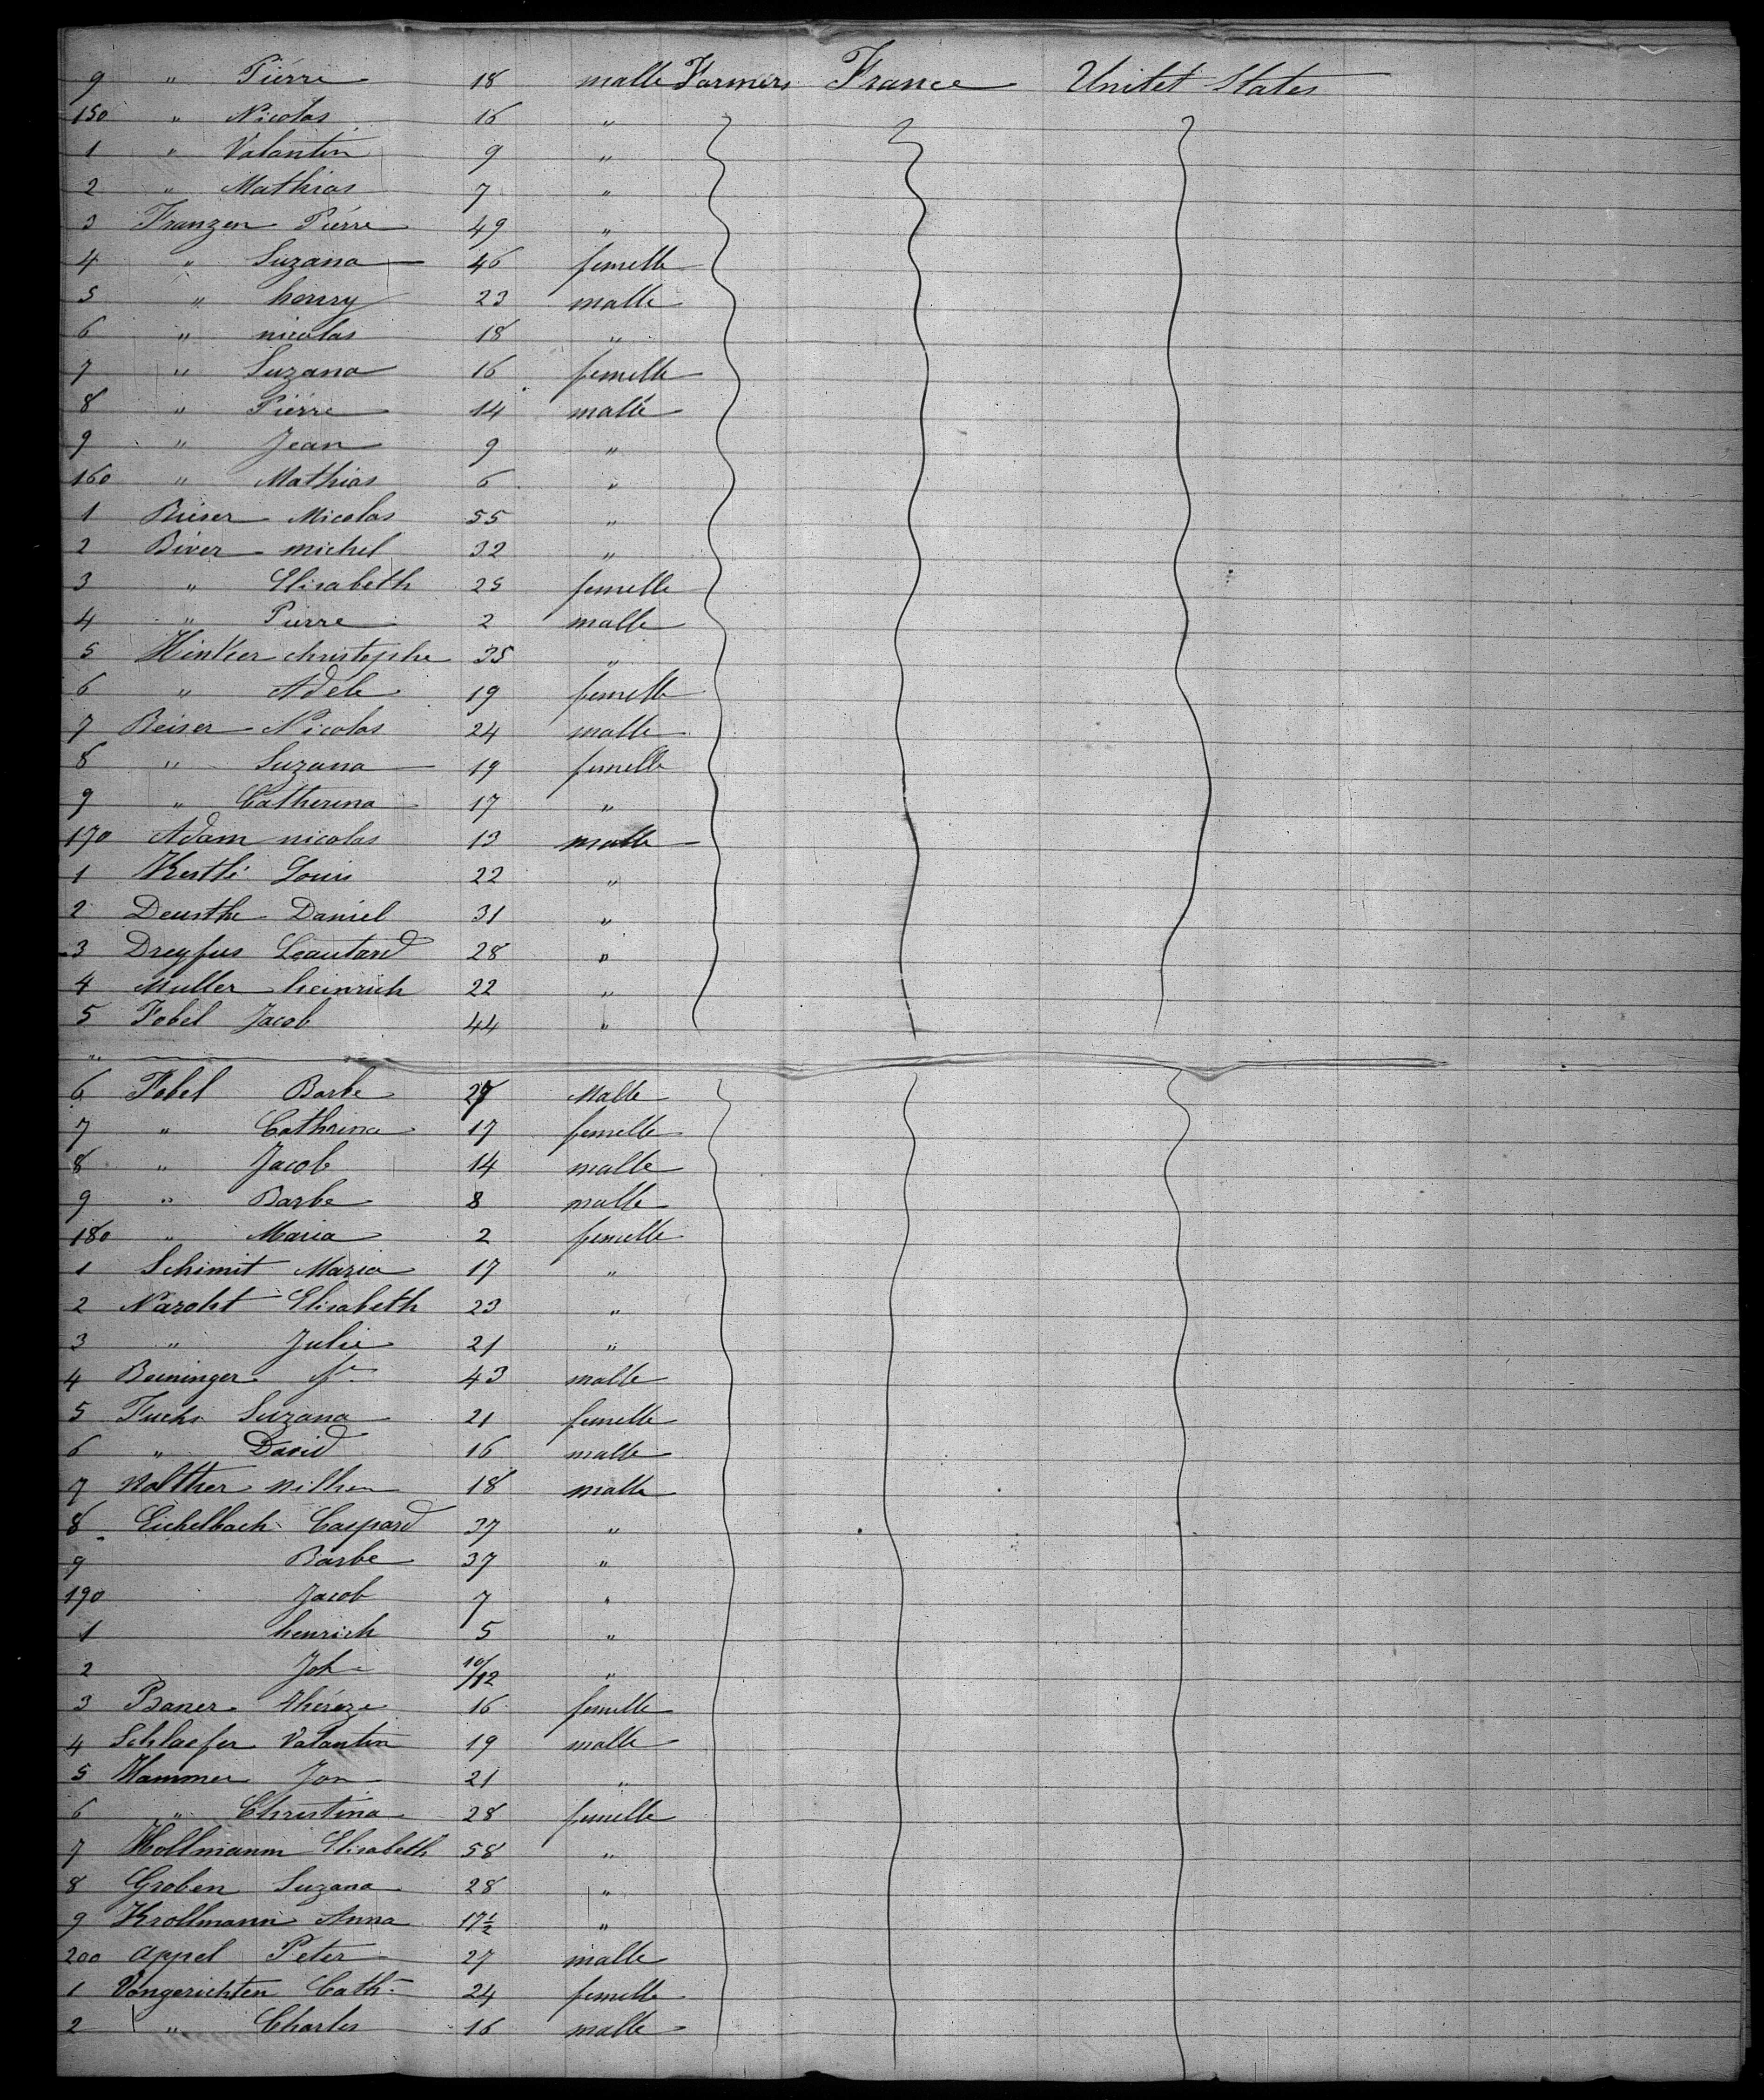 9 " Piérre 18 malle Farmers France Unitet States
150 " Nicolas 16 "
1 " Valantin 9 "
2 " Mathias 7 "
3 Franzen Piérre 49 "
4 " Suzana 46 femelle
5 " henry 23 malle
6 " nicolas 18 "
7 " Suzana 16 femelle
8 " Piérre 14 malle
9 " Jean 9 "
160 " Mathias 6 "
1 Nicolas 55 "
2 Biver michel 32 "
3 " Elisabeth 25 femelle
4 " Pierre 2 malle
5 christophe 35 "
6 " Adele 19 femelle
7 Beiser Nicolas 24 malle
8 " Suzana 19 femelle
9 " Catherina 17 "
170 Adam nicolas 13 malle
1 Louis 22 "
2 Daniel 31 "
3 Dreyfus Leautard 28 "
4 Muller heinrich 22 "
5 Fobel Jacob 44 "
6 Fobel Barbe Malle
7 " Cathrina 17 femelle
8 " Jacob 14 malle
9 " Barbe 8 malle
180 " Maria 2 femelle
1 Schimit Maria 17 "
2 Elisabeth 23 "
3 " Julie 21 "
4 Beininger 43 malle
5 Fuchs Suzana 21 femelle
6 " David 16 malle
7 Walther 18 malle
8 Eichelbach Caspard 37 "
9 Barbe 37 "
190 Jacob 7 "
1 henrich 5 "
2 Joh 10/12 "
3 Théreze 16 femelle
4 Schlaefer Valantin 19 malle
5 Hammer Jon 21 "
6 " Christina 28 femelle
7 Hollmann Elisabeth 58 "
8 Groben Suzana 28 "
9 Krollmann Anna 17½ "
200 Appel Peter 27 malle
1 Vongerichten Cath. 24 femelle
2 " Charles 16 malle